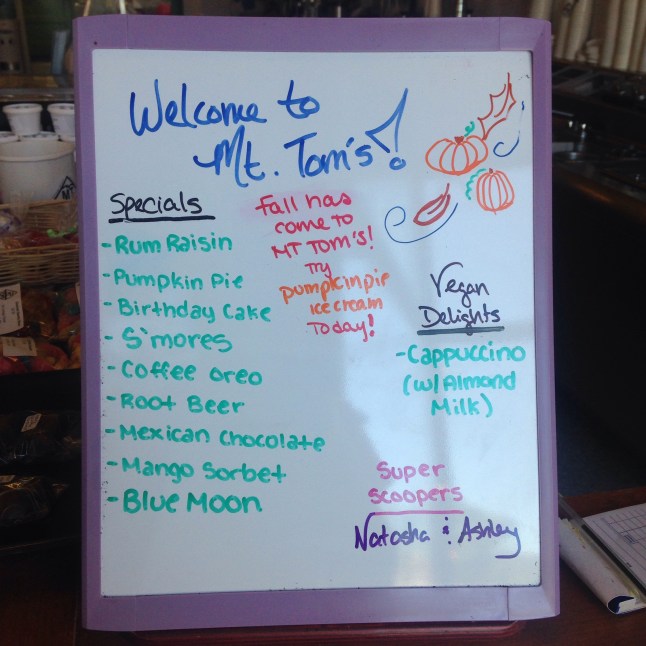 Welcome to
Mt. Tom's!
Specials
-Rum Raisin
-Pumpkin Pie
-Birthday Cake
-S'mores
-Coffee oreo
-Root Beer
-Mexican Chocolate
-Mango Sorbet
-Blue Moon
Fall has
come to
MT TOM'S!
Try
pumpkin pie
ice cream
Today!
Vegan
Delights
-Cappuccino
(w/ Almond
Milk)
Super
Scoopers
Natasha & Ashley